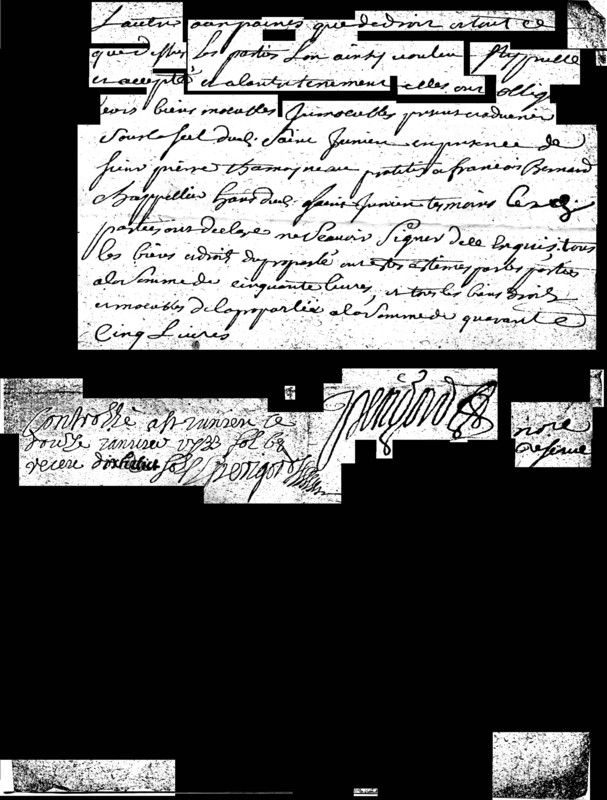 Lautre aux peines que de droit et tout ce
que dessus les parties lont ainsy voulleu stippullé
et accepté et a lentretenement elles ont oblig
leurs biens meubles Immeubles presens et advenir
Sous le seel dud. Saint Junien en presence de
sieur pierre thamoyneau pratitien francois Bernard
Chappellier hans dud. Saint Junien temoins Les
parties ont declaré ne Scavoir Signer de ce Enquis, tous
les biens et droits du proparlé ont estes estimes par les parties
a la Somme de cinquante livres, et tous les biens droits
et meubles de la proparlée a la Somme de quarante
Cinq Livres
Controllé a St Junien ce
douse janvier 1733 fol 68
receu dix sol
notre
reserve